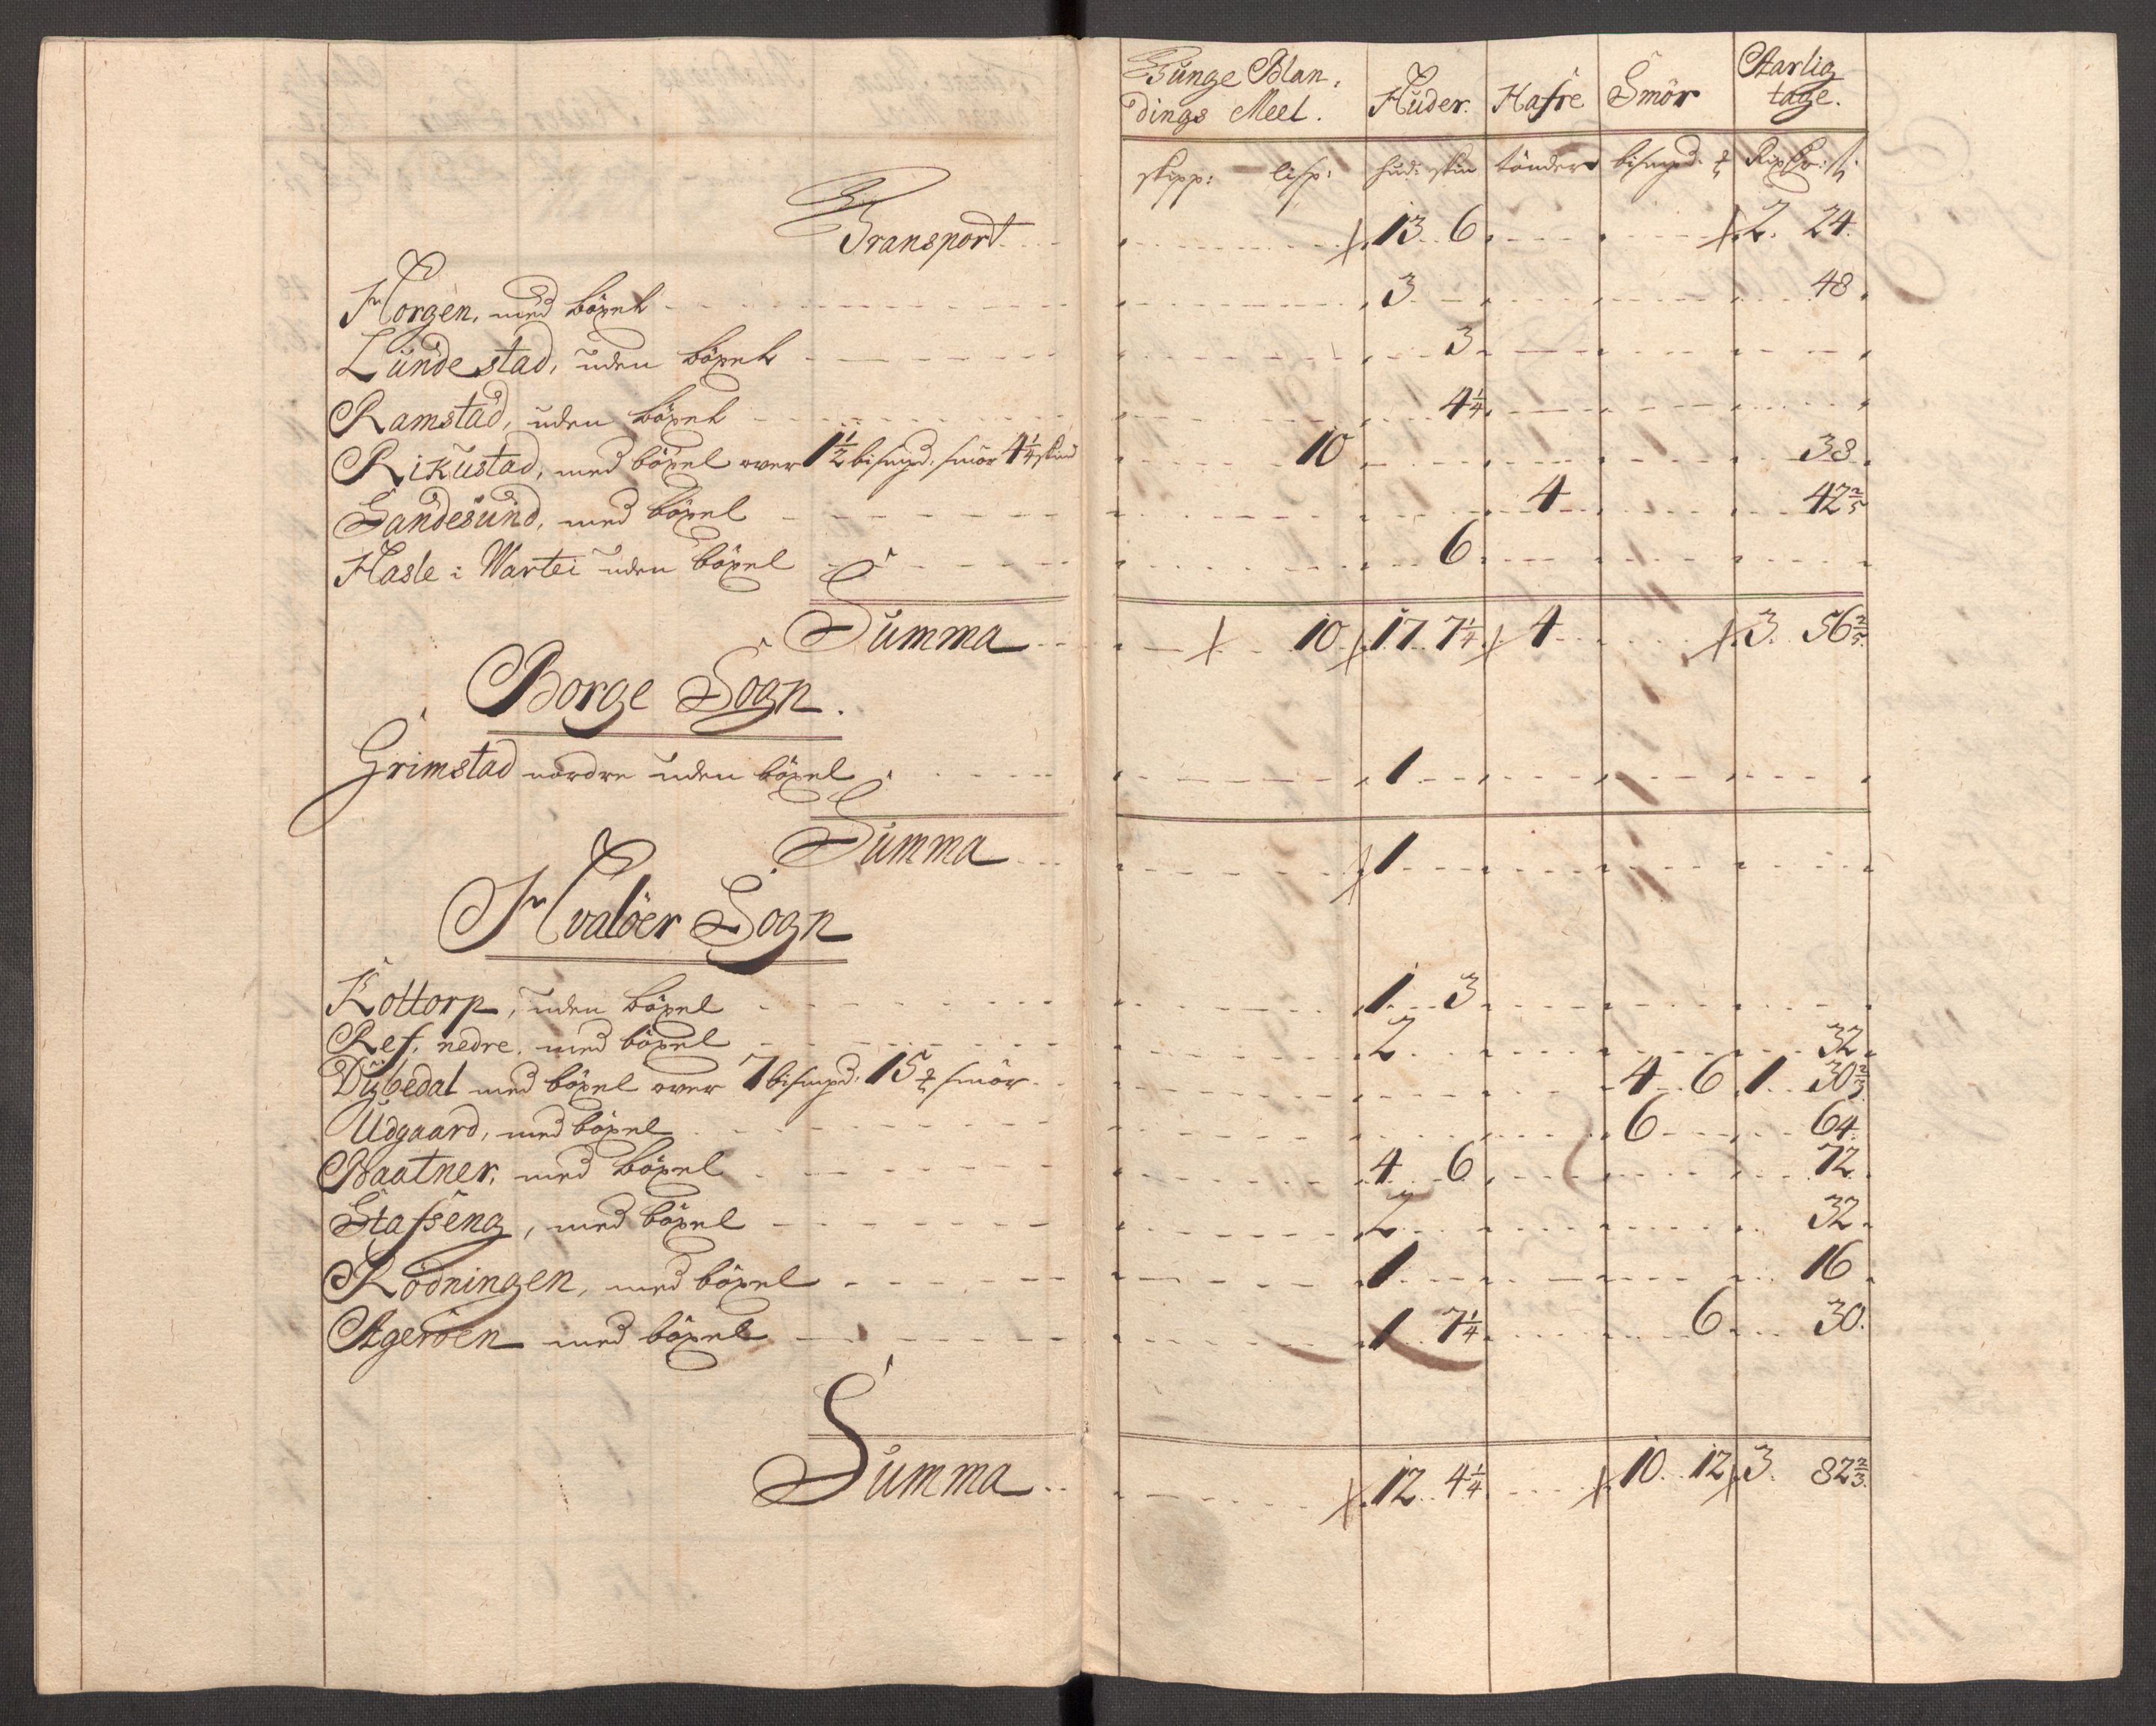 Tunge Blan- Huder. Hafre Smör Aarlig
dings Meel. tage.
skipp: lisp: hud: skin tönder bismpd: Rixdr: ſ:
Transport 13 6 2 24
Horgen, med böxel 3 48
Lunde stad, uden böxel 3
Ramstad, uden böxel 4 1/4
Rikustad, med böxel over 1 1/2 bismpd: smör 4 1/4 skind 10 38
Sandesund, med böxel 4 42 2/5
Hasle i Wartei uden böxel 6
Summa 10 17 7 1/4 4 3 56 2/5
Borge Sogn.
Grimstad nordre uden böxel 1
Summa 1
Hvalöer Sogn
Kottorp, uden böxel 1 3
Ref, nedre, med böxel 2 32
Dÿbedal med böxel over 7 bismpd: 15 smör 4 6 1 30 2/3
Udgaard, med böxel 6 64
Baatner, med böxel 4 6 72
Stafseng, med böxel 2 32
Rödningen, med böxel 1 16
Ageröen med böxel 1 7 1/4 6 30
Summa 12 4 1/4 10 12 3 82 2/3